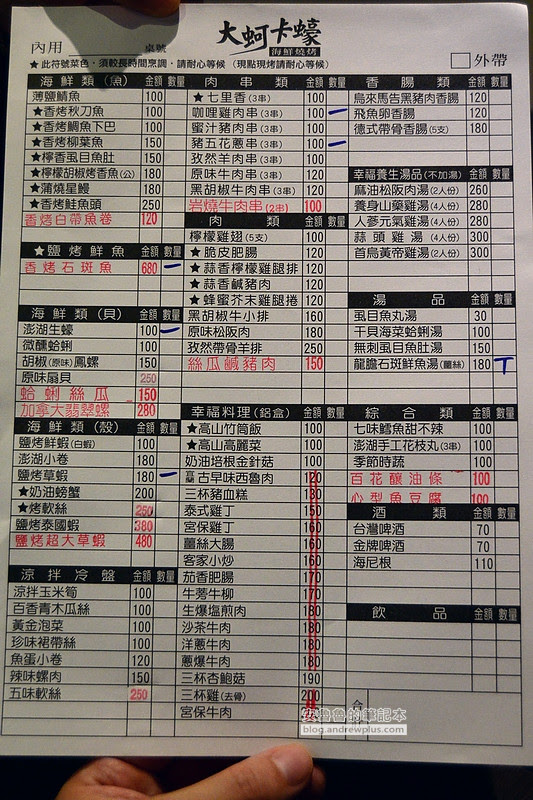 大蚵卡蠔
海鮮燒烤
內用
桌號
★此符號菜色，須較長時間烹調，請耐心等候 (現點現烤請耐心等候)
外帶
海鮮類(魚) 金額 數量
薄鹽鯖魚 100
★香烤秋刀魚 100
★香烤鯛魚下巴 100
★香烤柳葉魚 150
★檸香虱目魚肚 150
★檸檬胡椒烤香魚(公) 180
★蒲燒星鰻 180
★香烤鮭魚頭 250
香烤白帶魚卷 120
★鹽烤鮮魚 金額 數量
香烤石斑魚 680
海鮮類(貝) 金額 數量
澎湖生蠔 100
微醺蛤蜊 100
胡椒(原味)鳳螺 150
原味扇貝 250
蛤蜊絲瓜 150
加拿大翡翠螺 280
海鮮類(殼) 金額 數量
鹽烤鮮蝦(白蝦) 100
澎湖小卷 180
鹽烤草蝦 180
★奶油螃蟹 200
★烤軟絲 250
鹽烤泰國蝦 380
鹽烤超大草蝦 480
涼拌冷盤 金額 數量
涼拌玉米筍 100
百香青木瓜絲 100
黃金泡菜 100
珍味裙帶絲 100
魚蛋小卷 120
辣味螺肉 150
五味軟絲 250
肉串類 金額 數量
★七里香(3串) 100
咖哩雞肉串(3串) 100
蜜汁豬肉串(3串) 100
豬五花蔥串(3串) 100
孜然羊肉串(3串) 100
原味牛肉串(3串) 120
黑胡椒牛肉串(3串) 120
岩燒牛肉串(2串) 100
肉類 金額 數量
檸檬雞翅(5支) 100
★脆皮肥腸 120
★蒜香檸檬雞腿排 120
★蒜香鹹豬肉 120
★蜂蜜芥末雞腿捲 120
黑胡椒牛小排 160
原味松阪肉 180
孜然帶骨羊排 250
絲瓜鹹豬肉 150
幸福料理(鋁盒) 金額 數量
★高山竹筒飯 100
★高山高麗菜 100
奶油培根金針菇 100
宜蘭古早味西魯肉 120
三杯豬血糕 130
泰式雞丁 150
宮保雞丁 160
薑絲大腸 160
客家小炒 160
茄香肥腸 170
牛蒡牛柳 170
生爆塩煎肉 180
沙茶牛肉 180
洋蔥牛肉 180
蔥爆牛肉 180
三杯杏鮑菇 190
三杯雞(去骨) 200
宮保牛肉
香腸類 金額 數量
烏來馬告黑豬肉香腸 120
飛魚卵香腸 120
德式帶骨香腸(5支) 180
幸福養生湯品(不加湯) 金額 數量
麻油松阪肉湯(2人份) 260
養身山藥雞湯(4人份) 280
人蔘元氣雞湯(4人份) 280
蒜頭雞湯(4人份) 300
首烏黃帝雞湯(2人份) 300
湯品 金額 數量
虱目魚丸湯 30
干貝海菜蛤蜊湯 100
無刺虱目魚肚湯 150
龍膽石斑鮮魚湯(薑絲) 180
綜合類 金額 數量
七味鱈魚甜不辣 100
澎湖手工花枝丸(3串) 100
季節時蔬 100
百花釀油條 100
心型魚豆腐 100
酒類 金額 數量
台灣啤酒 70
金牌啤酒 70
海尼根 110
飲品 金額 數量
安魯魯的筆記本
blog.andrewplus.com